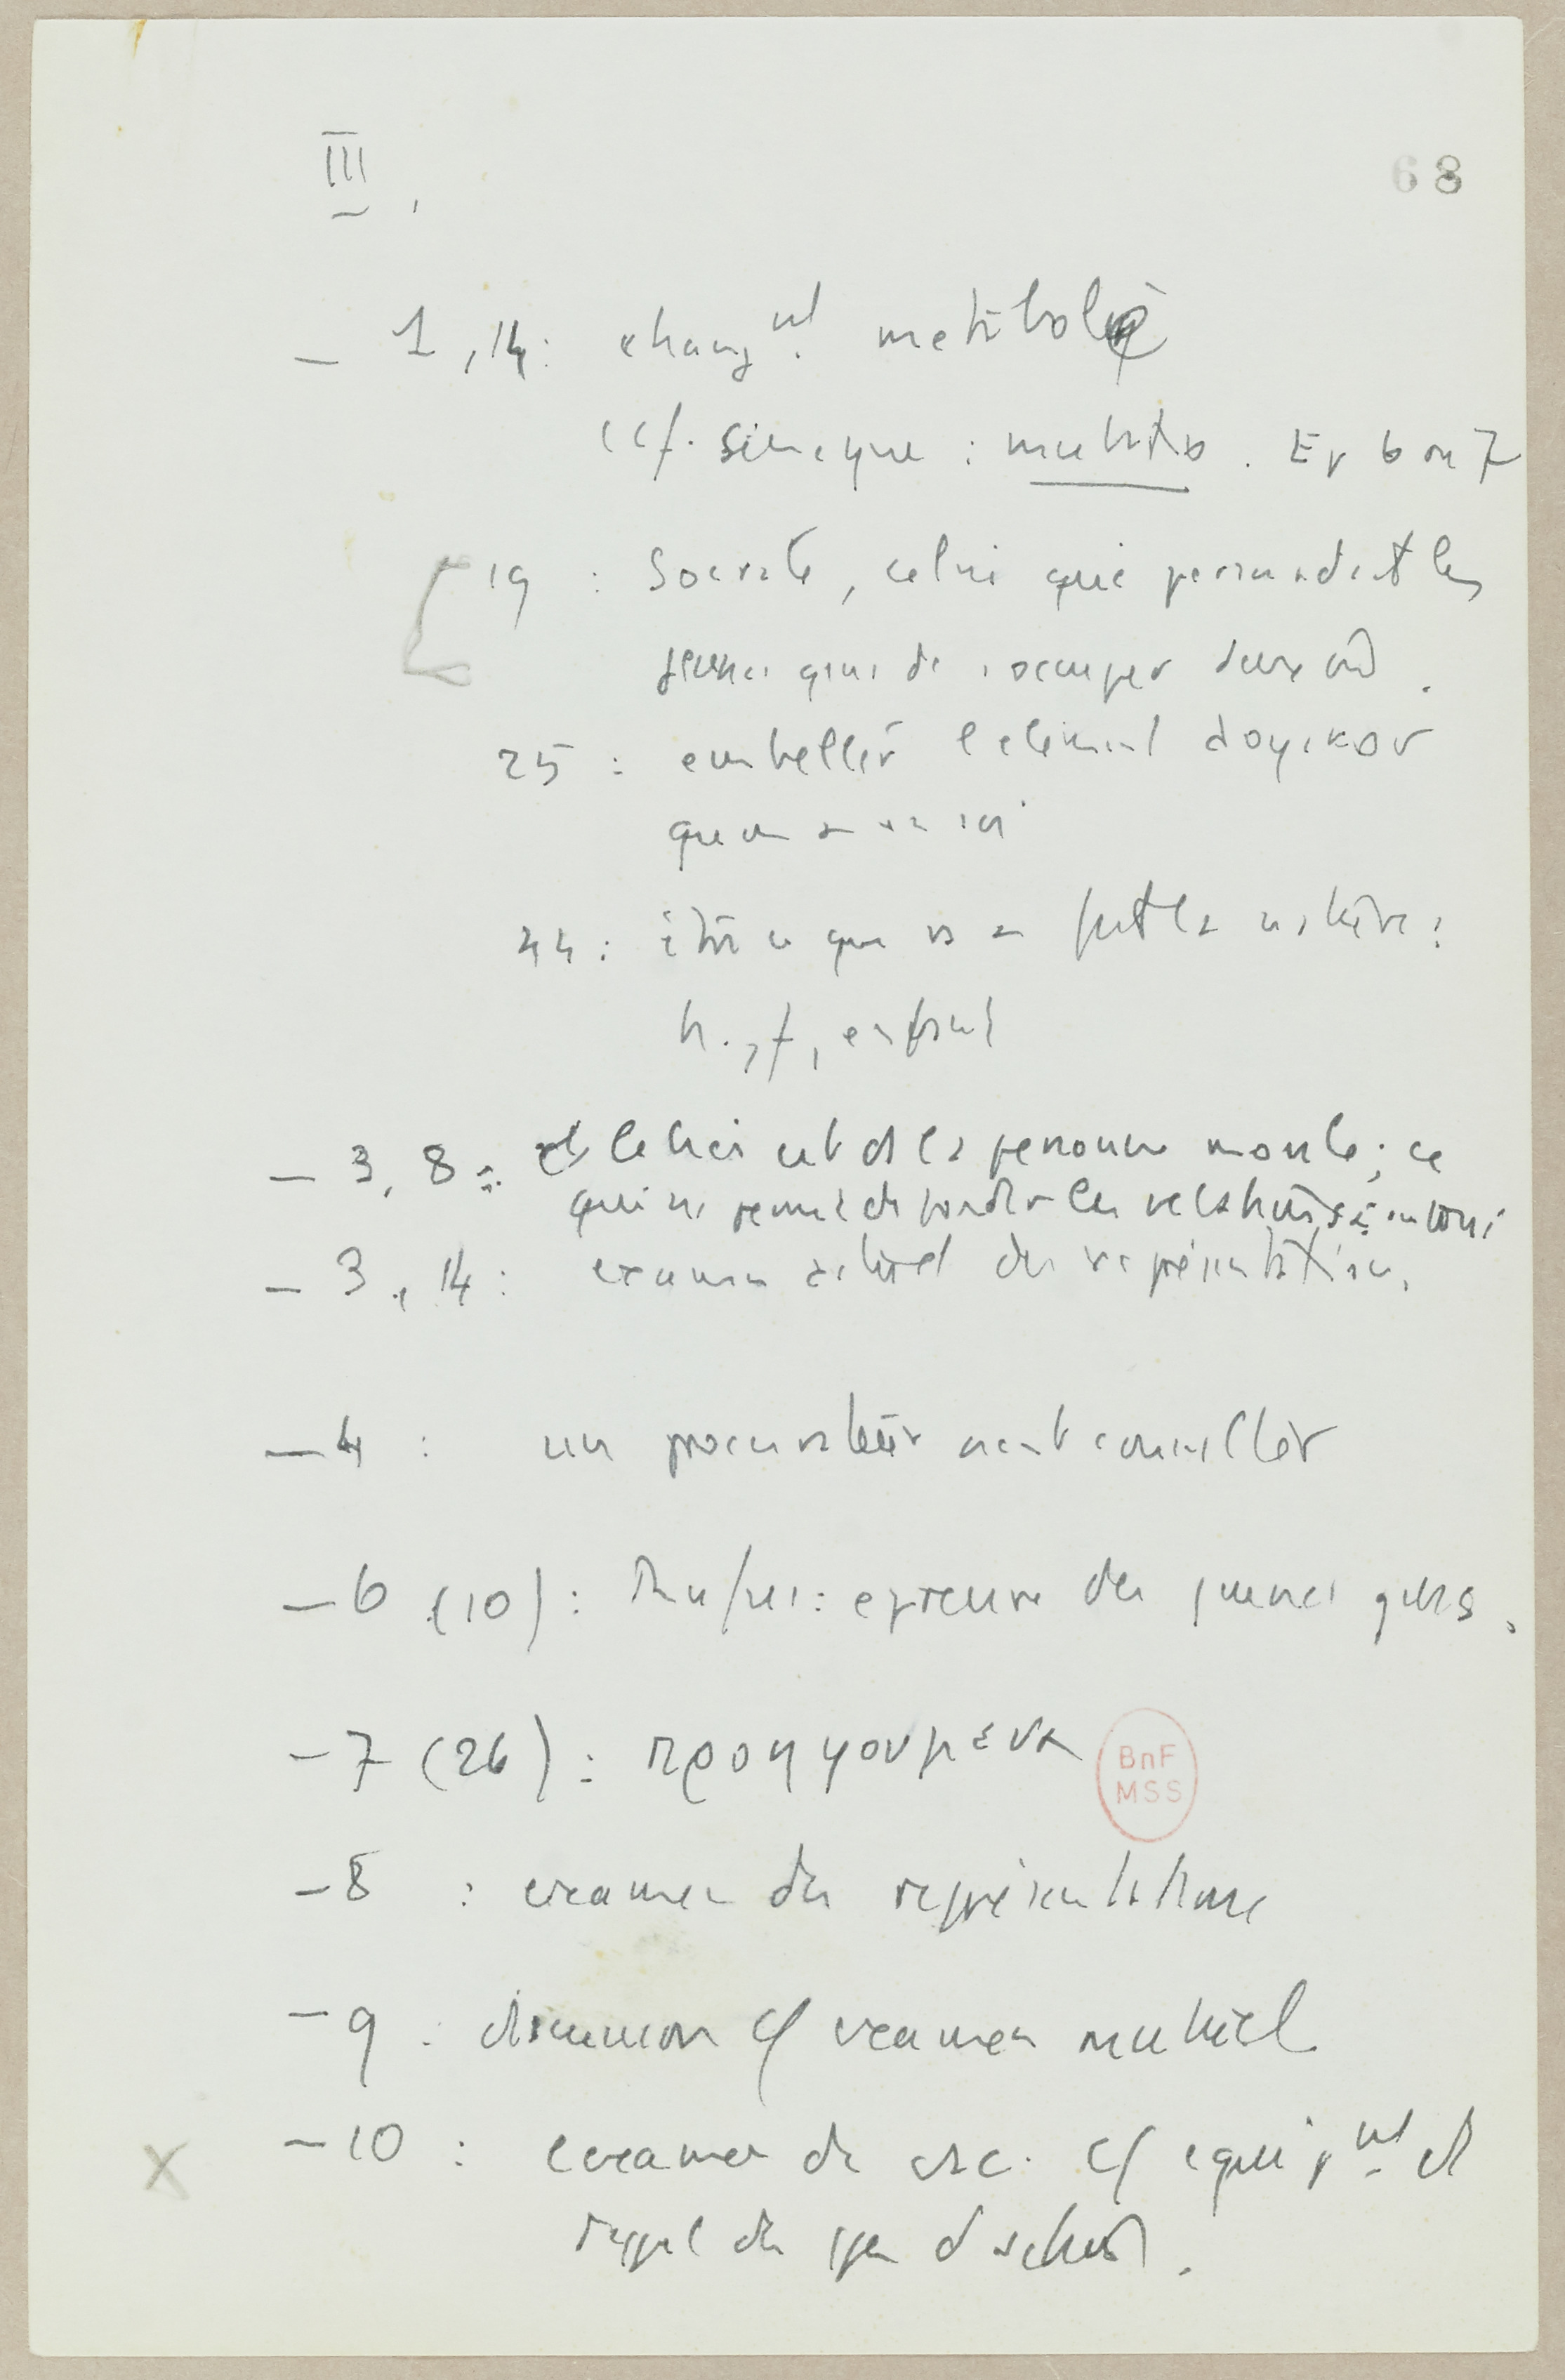 III
68
— 1, 14 : changt. metabolè
(cf. Sénèque : mutatio. Ep 6 ou 7
19 : Socrate, celui qui persuadait les
jeunes gens de s'occuper d'eux
25 : embellir l'élément λογικον
qu'on a en soi
44 : être ce que vs a fait la nature :
h., f, enfant
— 3, 8 : le bien est ds la personne morale ; ce
qui ns permet de garder les relations
— 3, 14 : examen des représentations.
— 4 : un procurateur vient consulter
— 6 (10) : Rufus : épreuve des jeunes gens.
— 7 (26) : προηγουμενα
BnF
MSS
— 8 : examen des représentations
— 9 : discussion cf examen mutuel
— 10 : examen de csc. cf equipt. et
rappel des ppes d'action.
X